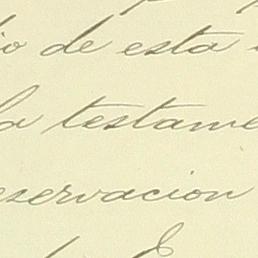 io de esta
la testame
eservacion